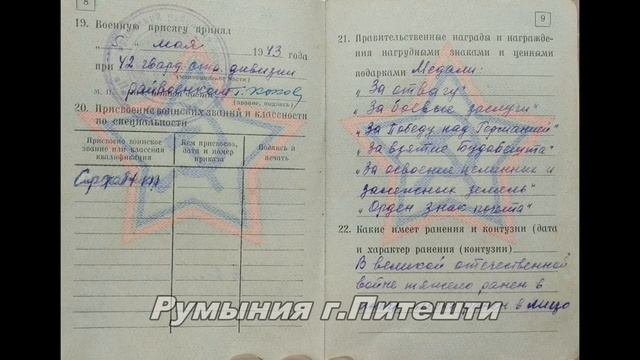 8
19. Военную присягу принял
"5" мая 1943 года
при 42 гвард. стр. дивизии
(наименование части)
М. П.
(звание, подпись)
20. Присвоение воинских званий и классности
по специальности
Присвоено воинское звание или классная квалификация
Кем присвоено, дата и номер приказа
Подпись и печать
9
21. Правительственные награды и награжде-
ния нагрудными знаками и ценными
подарками Медали:
"За отвагу"
"За боевые заслуги"
"За Победу над Германией"
"За взятие Будапешта"
"За освоение целинных и
залежных земель"
"Орден Знак почета"
22. Какие имеет ранения и контузии (дата
и характер ранения (контузии)
В великой отечественной
войне тяжело ранен в
в лицо
Румыния г.Питешти